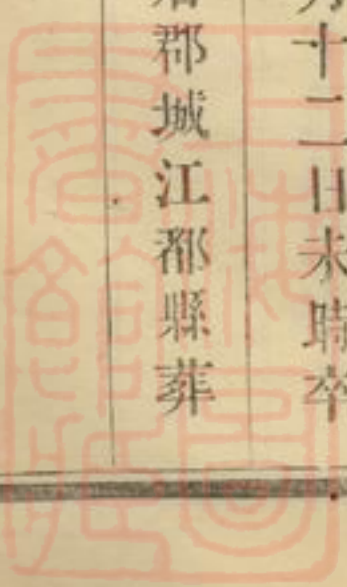 十二日未時卒
郡城江都縣葬